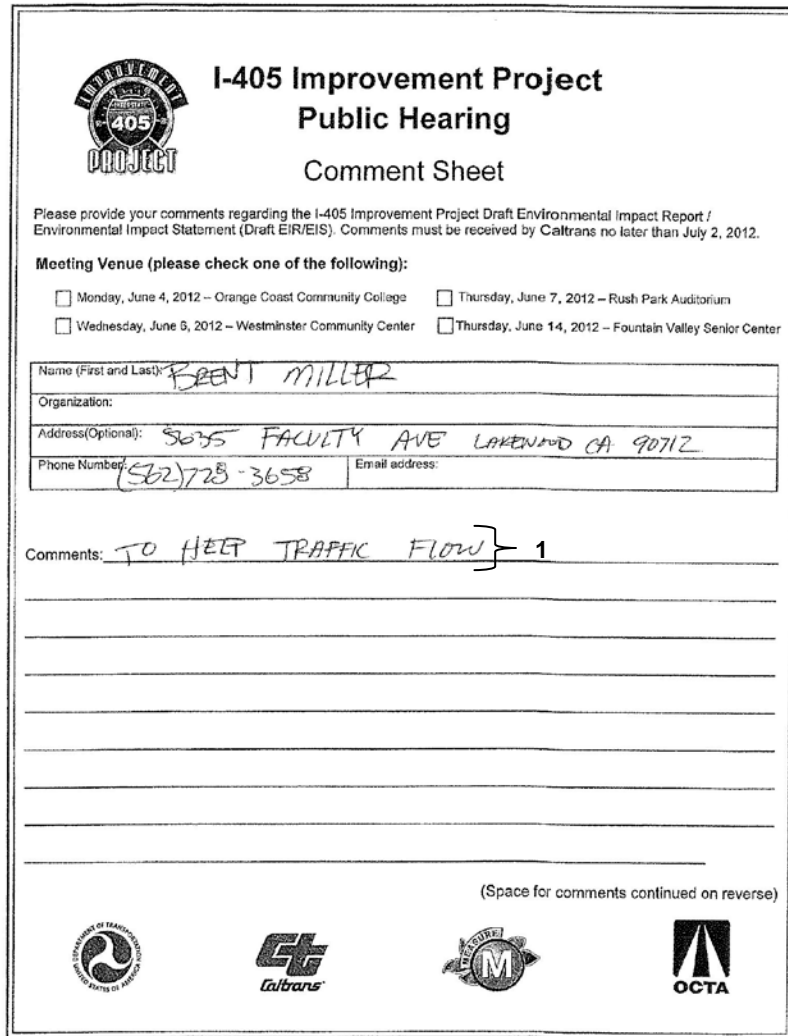 IMPROVEMENT
INTERSTATE
405
PROJECT
I-405 Improvement Project
Public Hearing
Comment Sheet
Please provide your comments regarding the I-405 Improvement Project Draft Environmental Impact Report /
Environmental Impact Statement (Draft EIR/EIS). Comments must be received by Caltrans no later than July 2, 2012.
Meeting Venue (please check one of the following):
Monday, June 4, 2012 – Orange Coast Community College
Thursday, June 7, 2012 – Rush Park Auditorium
Wednesday, June 6, 2012 – Westminster Community Center
Thursday, June 14, 2012 – Fountain Valley Senior Center
Name (First and Last): BRENT MILLER
Organization:
Address(Optional): 5635 FACULTY AVE LAKEWOOD CA 90712
Phone Number: (562)728-3658 Email address:
Comments: TO HELP TRAFFIC FLOW 1
(Space for comments continued on reverse)
DEPARTMENT OF TRANSPORTATION
UNITED STATES OF AMERICA
Ct
Caltrans
MEASURE
M
OCTA